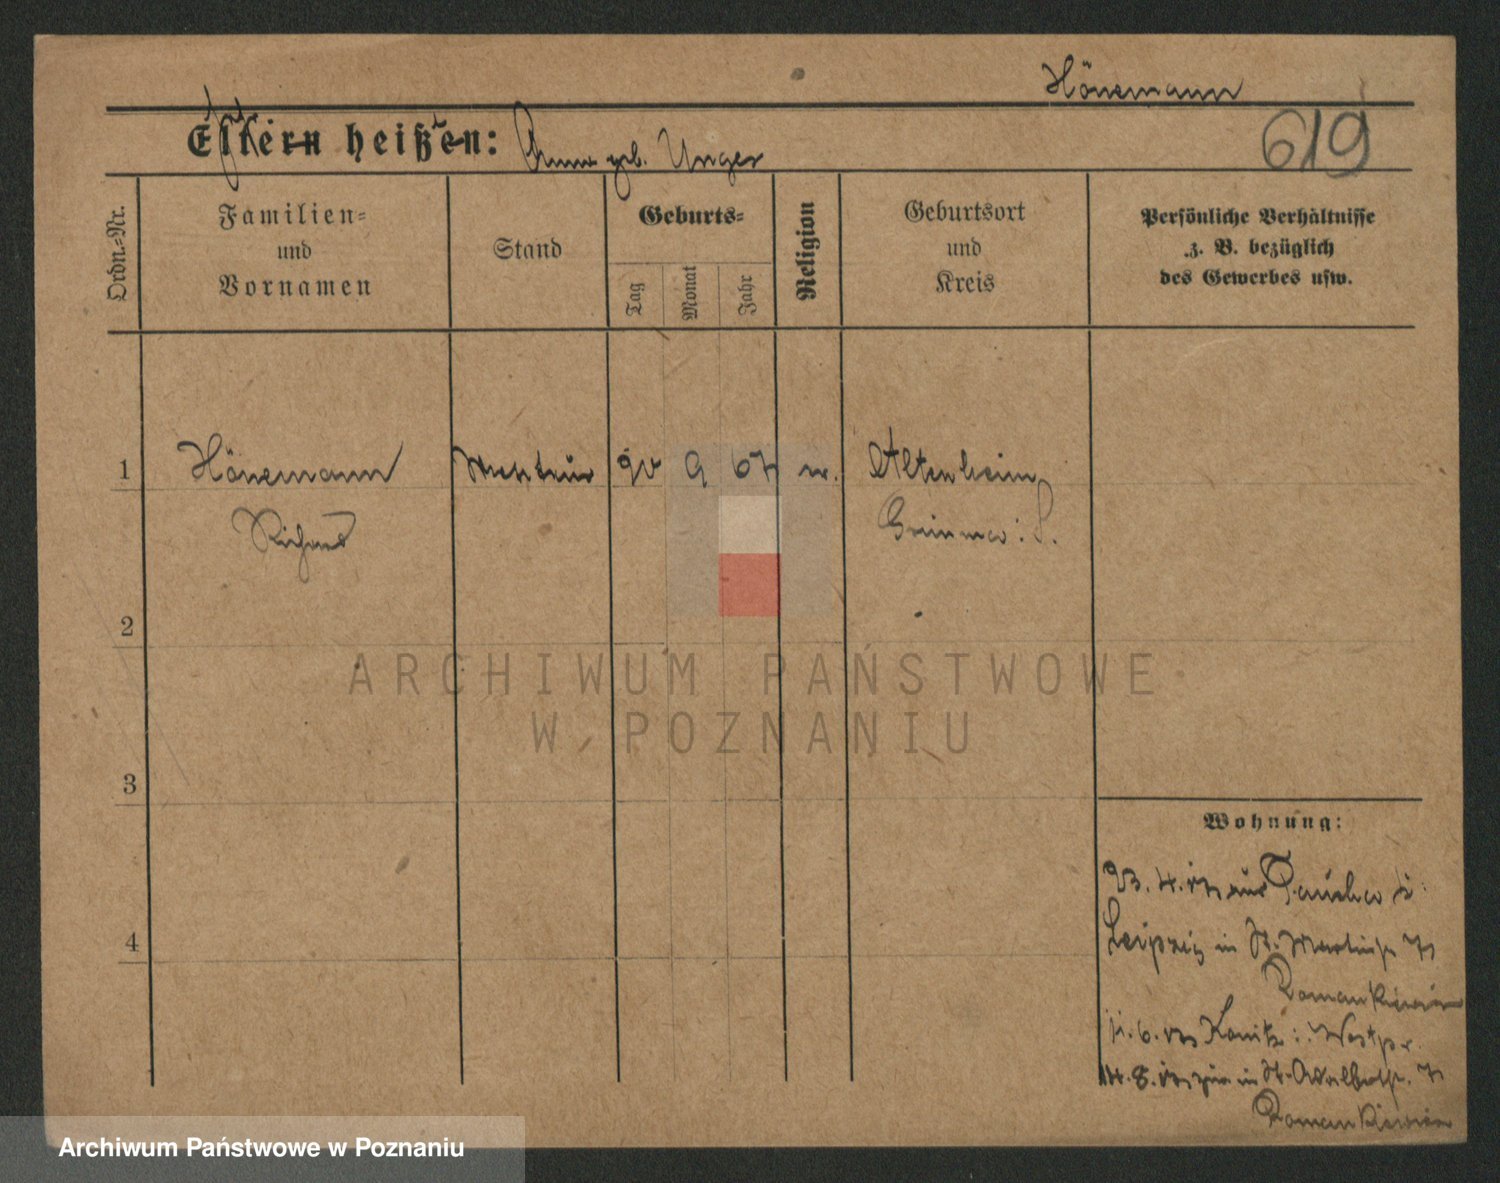 Hönemann
Eltern heißen: Anna geb. Unger
619
Ordn.-Nr.
Familien-
und
Vornamen
Stand
Geburts-
Tag
Monat
Jahr
Religion
Geburtsort
und
Kreis
Persönliche Verhältnisse
z. B. bezüglich
des Gewerbes usw.
1
Hönemann
Monteur
9
67
Altenhain
Richard
Grimma i. S.
2
3
4
Wohnung:
23. 4. aus Taucha b.
Leipzig in St. Martinstr.
11. 6. Konitz i. Westpr.
14. 8. in St. Adalbertstr.
ARCHIWUM PAŃSTWOWE
W POZNANIU
Archiwum Państwowe w Poznaniu